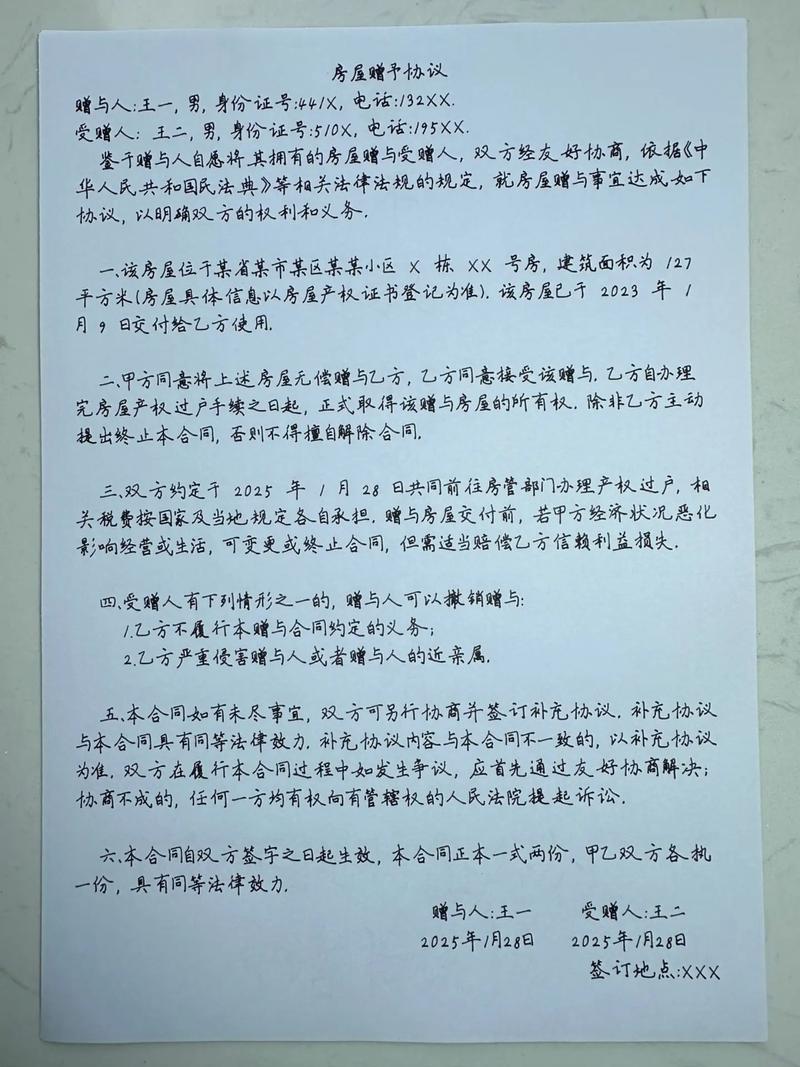 房屋赠予协议
赠与人:王一,男,身份证号:441X,电话:132XX.
受赠人: 王二,男,身份证号:510X,电话:195XX.
鉴于赠与人自愿将其拥有的房屋赠与受赠人,双方经友好协商,依据《中
华人民共和国民法典》等相关法律法规的规定,就房屋赠与事宜达成如下
协议,以明确双方的权利和义务.
一.该房屋位于某省某市某区某某小区 X 栋 XX 号房,建筑面积为 127
平方米(房屋具体信息以房屋产权证书登记为准).该房屋已于 2023 年 1
月 9 日交付给乙方使用.
二.甲方同意将上述房屋无偿赠与乙方,乙方同意接受该赠与.乙方自办理
完房屋产权过户手续之日起,正式取得该赠与房屋的所有权.除非乙方主动
提出终止本合同,否则不得擅自解除合同.
三.双方约定于 2025 年 1 月 28 日共同前往房管部门办理产权过户,相
关税费按国家及当地规定各自承担.赠与房屋交付前,若甲方经济状况恶化
影响经营或生活,可变更或终止合同,但需适当赔偿乙方信赖利益损失.
四.受赠人有下列情形之一的,赠与人可以撤销赠与:
1.乙方不履行本赠与合同约定的义务;
2.乙方严重侵害赠与人或者赠与人的近亲属.
五.本合同如有未尽事宜,双方可另行协商并签订补充协议.补充协议
与本合同具有同等法律效力.补充协议内容与本合同不一致的,以补充协议
为准.双方在履行本合同过程中如发生争议,应首先通过友好协商解决;
协商不成的,任何一方均有权向有管辖权的人民法院提起诉讼.
六.本合同自双方签字之日起生效,本合同正本一式两份,甲乙双方各执
一份,具有同等法律效力.
赠与人:王一 受赠人:王二
2025年1月28日 2025年1月28日
签订地点:XXX